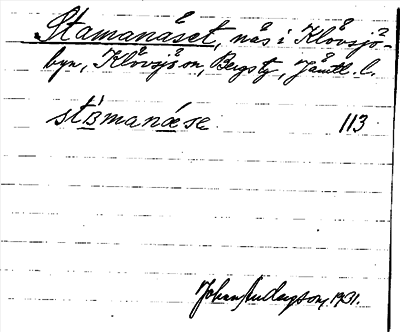 Stamanäset, näs i Klövsjö-
byn, Klövsjö sn, Bergs tg, Jämtl. l.
113
Johan Andersson, 1931.